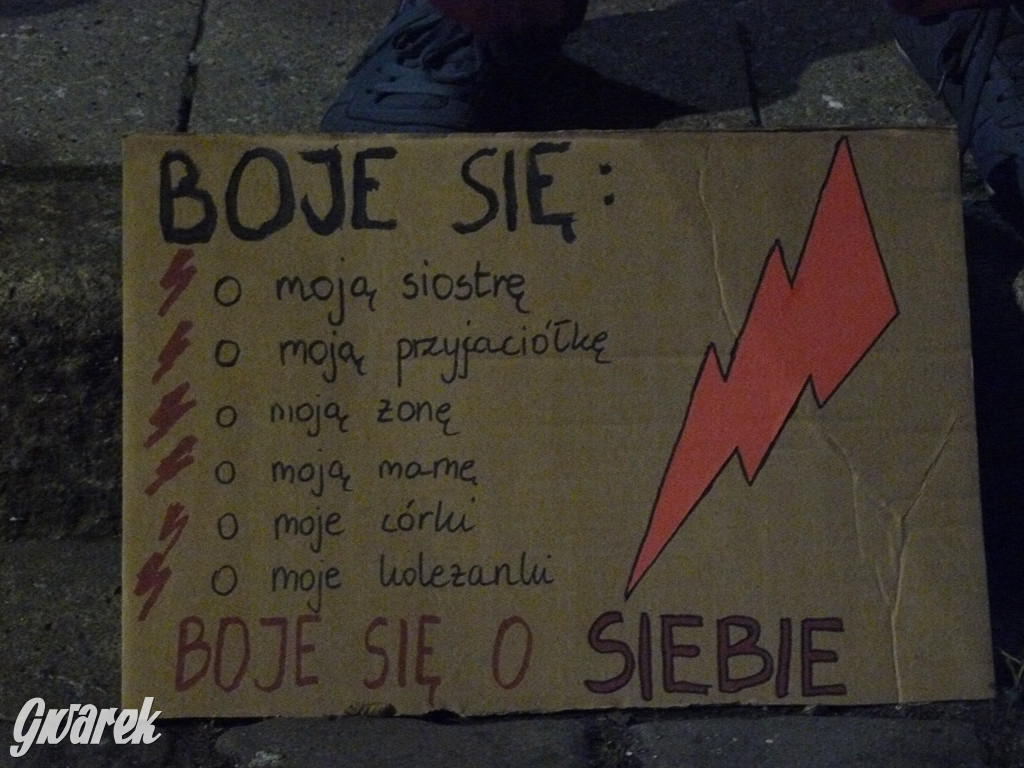 BOJE SIĘ:
O moją siostrę
O moją przyjaciółkę
O moją żonę
O moją mamę
O moje córki
O moje koleżanki
BOJE SIĘ O SIEBIE
Gwarek